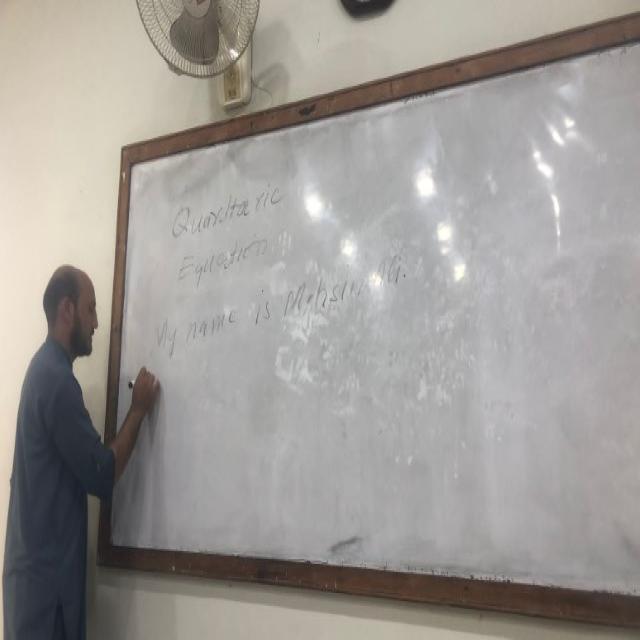 Quardtaric
Equation
My name is Mohsin Ali.